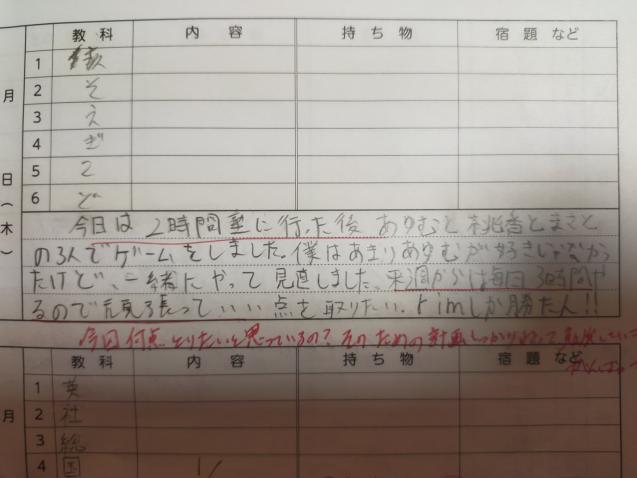 教科 内容 持ち物 宿題など
月
日(木)
1
2 そ
3 え
4 ぎ
5 2
6 ど
今日は2時間塾に行った後ありむと桃香とまさと
の3人でゲームをしました。僕はあまりありむが好きじゃなかっ
たけど、一緒にやって見直しました。来週からは毎日3時間や
るので頑張っていい点を取りたい。rimしか勝たん!!
今回何点とりたいと思っているの?そのための計画しっかり
教科 内容 持ち物 宿題など
月
1 英
2 社
3 総
4 国